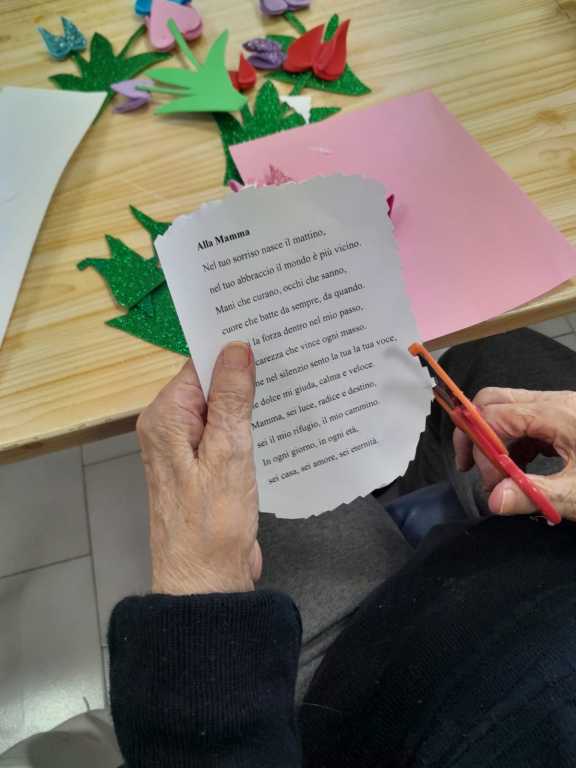 Alla Mamma
Nel tuo sorriso nasce il mattino,
nel tuo abbraccio il mondo è più vicino.
Mani che curano, occhi che sanno,
cuore che batte da sempre, da quando.
la forza dentro nel mio passo,
carezza che vince ogni masso.
nel silenzio sento la tua la tua voce,
dolce mi giuda, calma e veloce.
Mamma, sei luce, radice e destino,
sei il mio rifugio, il mio cammino.
In ogni giorno, in ogni età,
sei casa, sei amore, sei eternità.